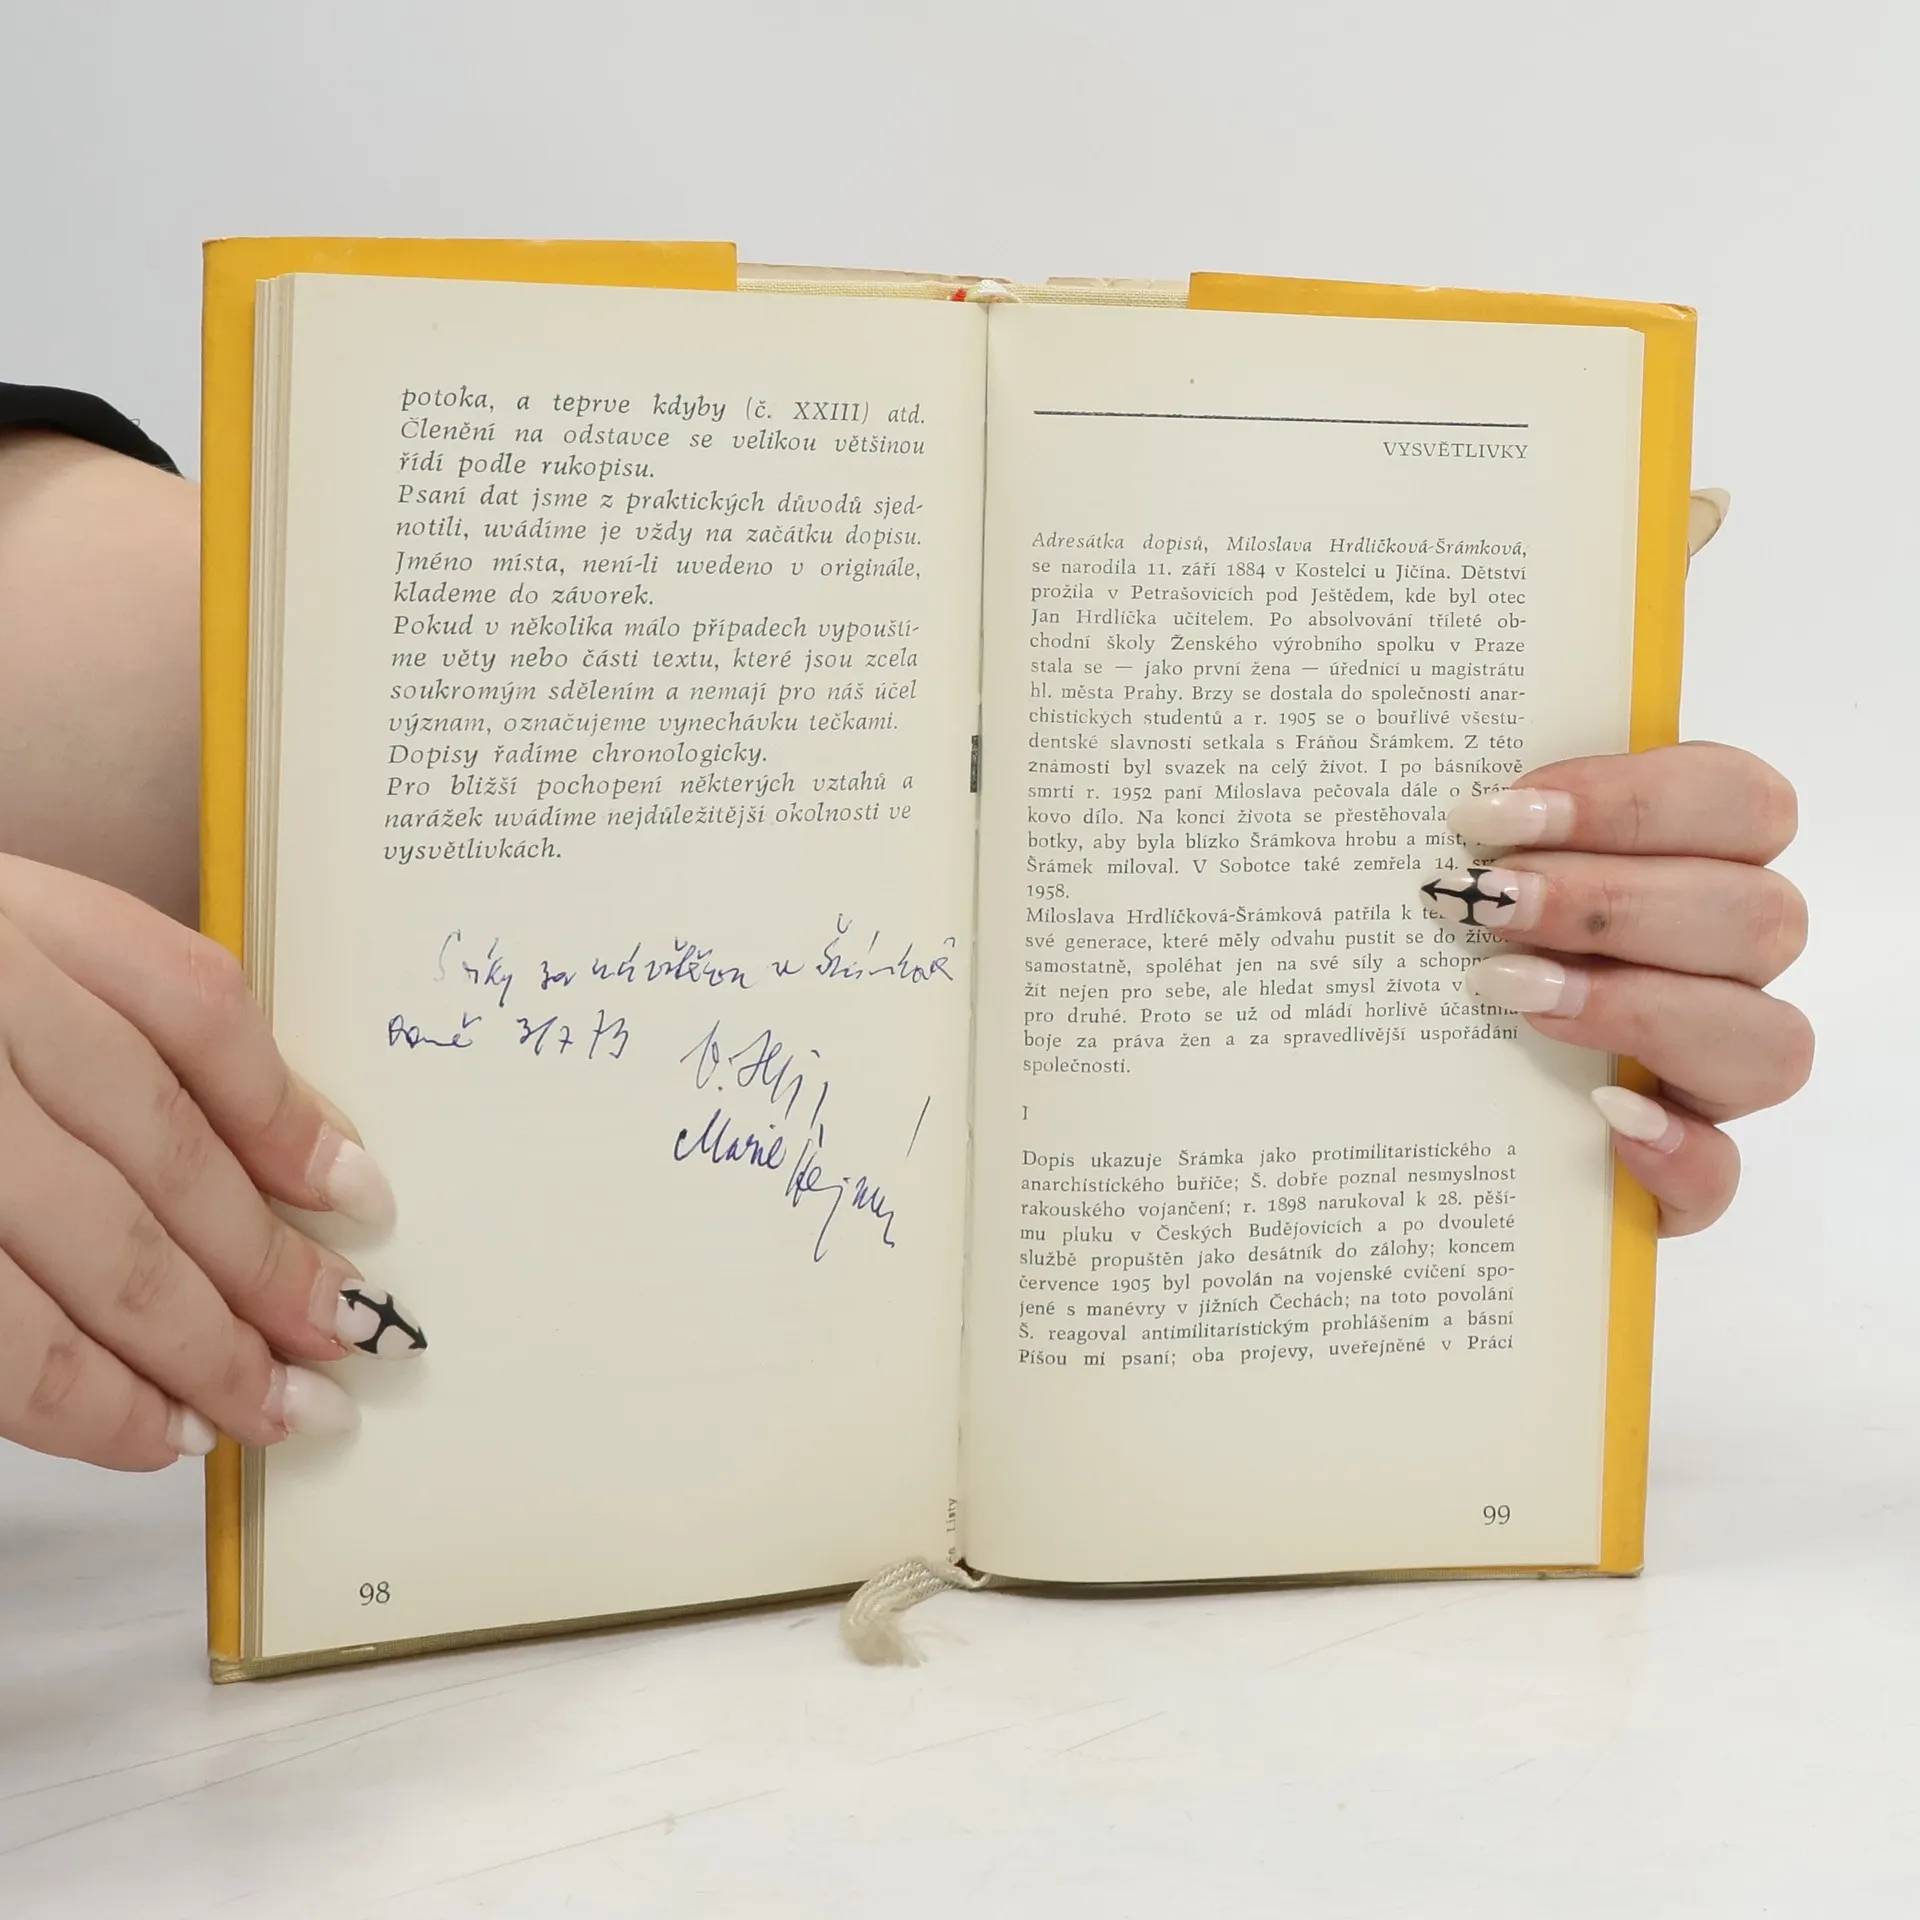 potoka, a teprve kdyby (č. XXIII) atd.
Členění na odstavce se velikou většinou
řídí podle rukopisu.
Psaní dat jsme z praktických důvodů sjed-
notili, uvádíme je vždy na začátku dopisu.
Jméno místa, není-li uvedeno v originále,
klademe do závorek.
Pokud v několika málo případech vypouští-
me věty nebo části textu, které jsou zcela
soukromým sdělením a nemají pro náš účel
význam, označujeme vynechávku tečkami.
Dopisy řadíme chronologicky.
Pro bližší pochopení některých vztahů a
narážek uvádíme nejdůležitější okolnosti ve
vysvětlivkách.
Díky za návštěvu v Šrámkově
domě 3/7 73
Marie
98
Listy
VYSVĚTLIVKY
Adresátka dopisů, Miloslava Hrdličková-Šrámková,
se narodila 11. září 1884 v Kostelci u Jičína. Dětství
prožila v Petrašovicích pod Ještědem, kde byl otec
Jan Hrdlička učitelem. Po absolvování tříleté ob-
chodní školy Ženského výrobního spolku v Praze
stala se — jako první žena — úřednicí u magistrátu
hl. města Prahy. Brzy se dostala do společnosti anar-
chistických studentů a r. 1905 se o bouřlivé všestu-
dentské slavnosti setkala s Fráňou Šrámkem. Z této
známosti byl svazek na celý život. I po básníkově
smrti r. 1952 paní Miloslava pečovala dále o Šrám-
kovo dílo. Na konci života se přestěhovala
botky, aby byla blízko Šrámkova hrobu a míst,
Šrámek miloval. V Sobotce také zemřela 14. srp
1958.
Miloslava Hrdličková-Šrámková patřila k
své generace, které měly odvahu pustit se do živo
samostatně, spoléhat jen na své síly a schopn
žít nejen pro sebe, ale hledat smysl života v
pro druhé. Proto se už od mládí horlivě účastnila
boje za práva žen a za spravedlivější uspořádání
společnosti.
I
Dopis ukazuje Šrámka jako protimilitaristického a
anarchistického buřiče; Š. dobře poznal nesmyslnost
rakouského vojančení; r. 1898 narukoval k 28. pěší-
mu pluku v Českých Budějovicích a po dvouleté
službě propuštěn jako desátník do zálohy; koncem
července 1905 byl povolán na vojenské cvičení spo-
jené s manévry v jižních Čechách; na toto povolání
Š. reagoval antimilitaristickým prohlášením a básní
Píšou mi psaní; oba projevy, uveřejněné v Práci
99